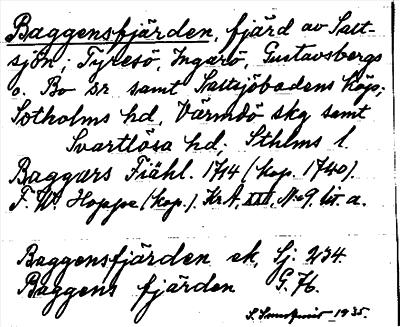 Baggensfjärden, fjärd av Salt-
sjön; Tyresö, Ingarö, Gustavsbergs
o. Bo sr samt Saltsjöbadens köp;
Sotholms hd, Värmdö skg samt
Svartlösa hd; Sthlms l.
Baggars Fiähl. 1714 (kop. 1740).
F. W. Hoppe (kop.). KrA, XIII, No 9, lit. a.
Baggensfjärden ek, Sj. 234.
Baggens fjärden G.76.
1935.